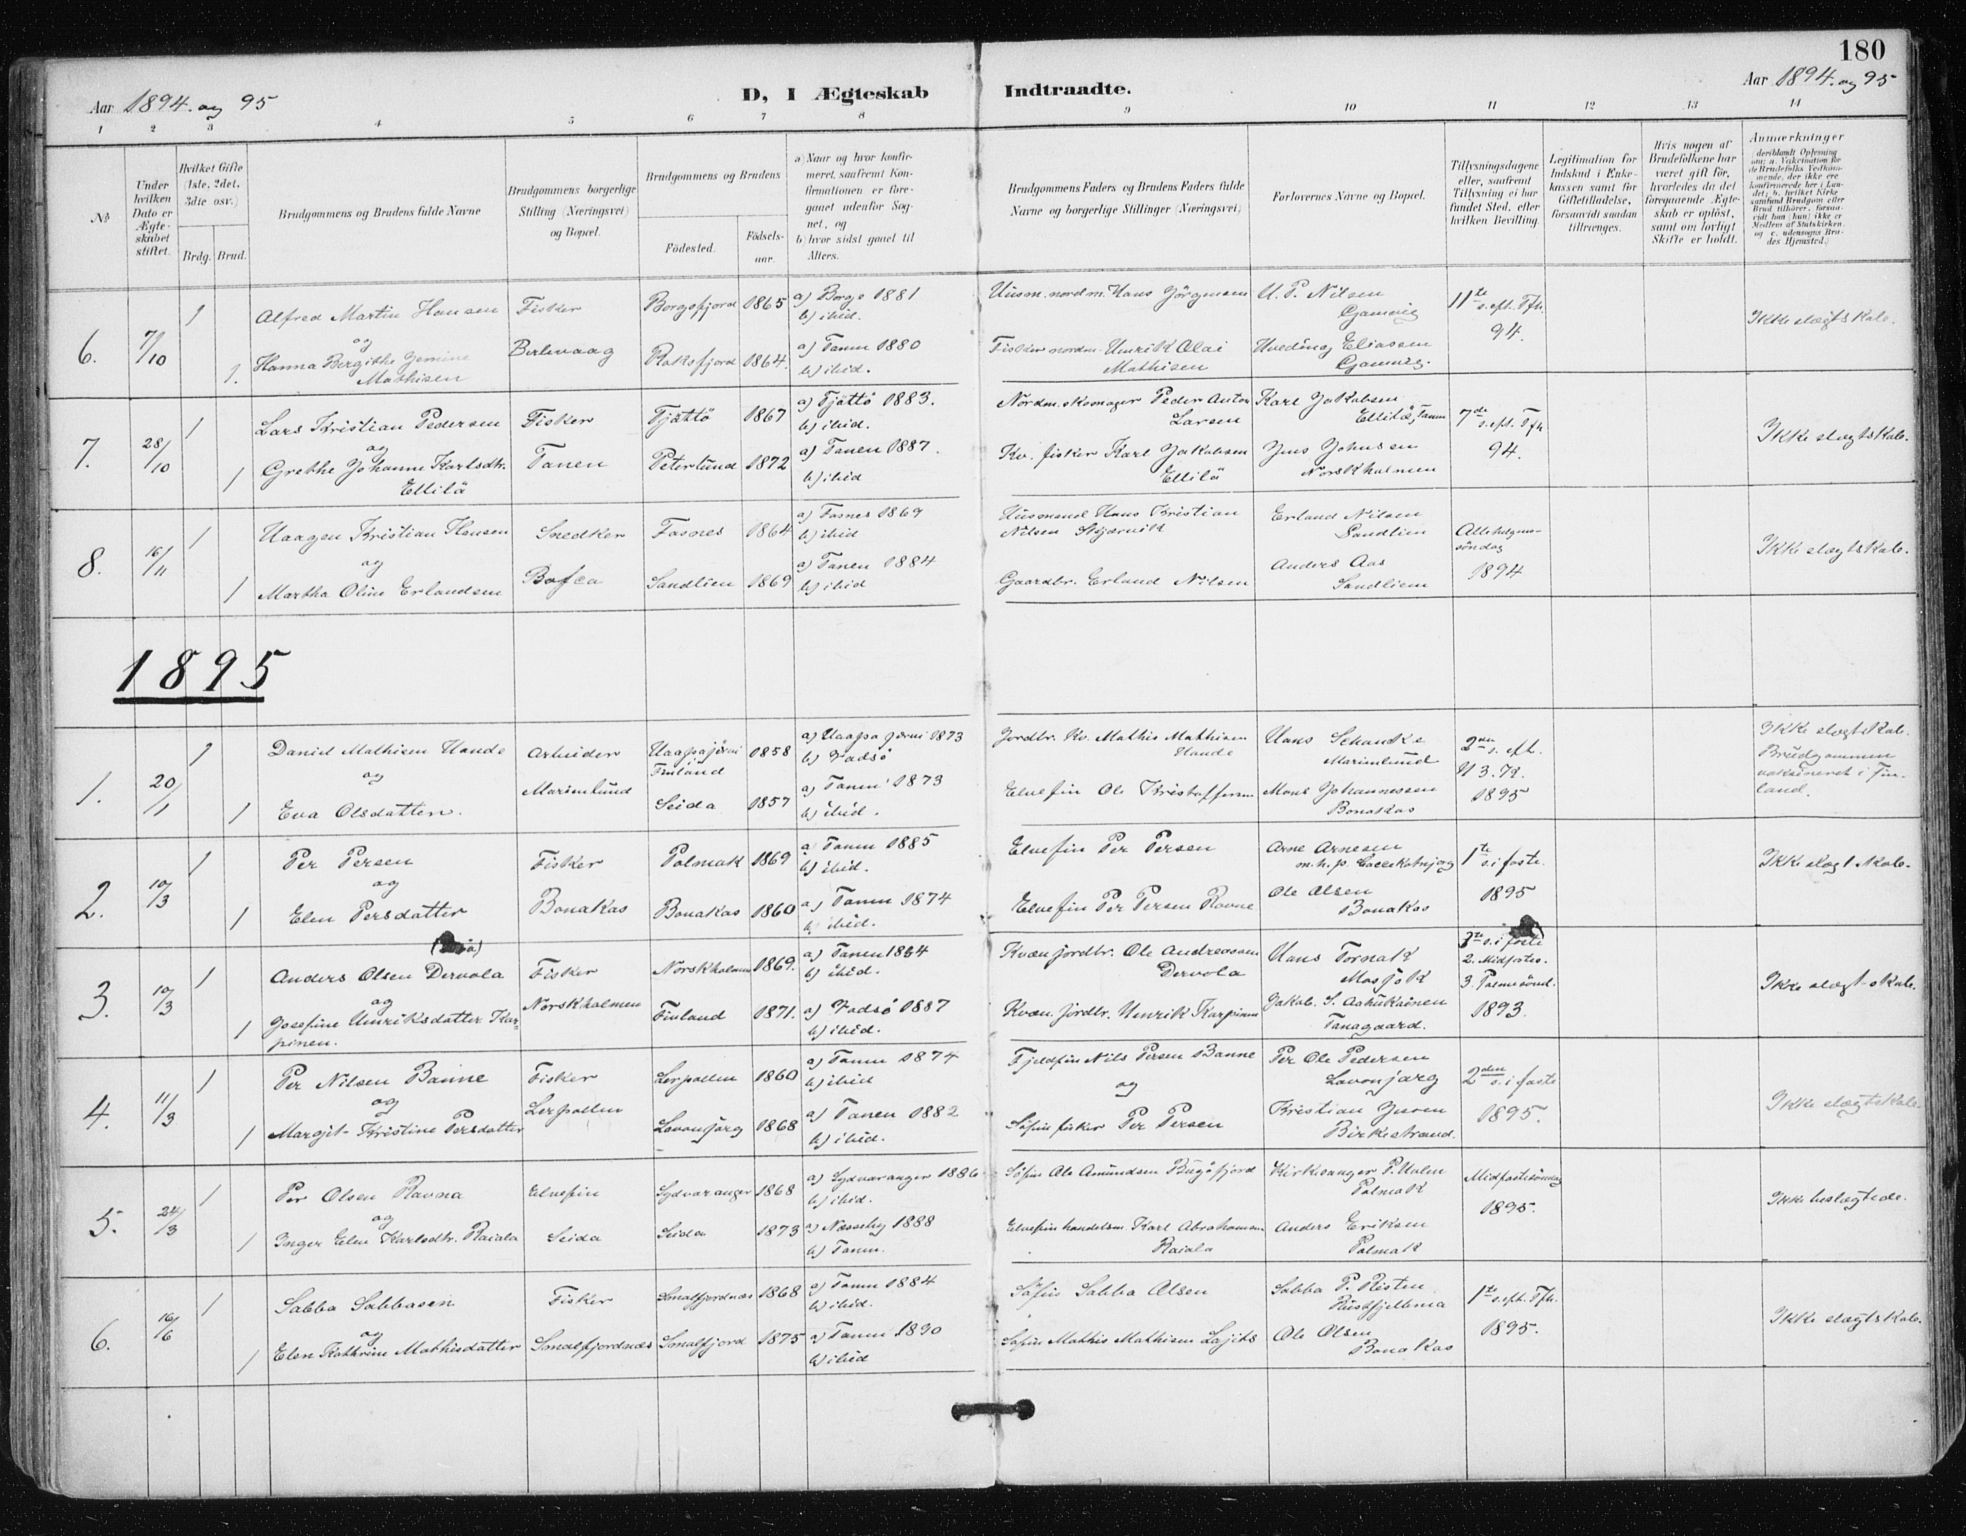 180
Aar 1894. og 95
D, I Ægteskab Indtraadte.
Aar 1894. og 95
1 2 3 4 5 6 7 8 9 10 11 12 13 14
No
Under hvilken Dato er Ægteskabet stiftet.
Hvilket Gifte (1ste, 2det, 3die osv.)
Brdg. Brud.
Brudgommens og Brudens fulde Navne
Brudgommens borgerlige Stilling (Næringsvei) og Bopæl.
Brudgommens og Brudens
Fødested.
Fødselsaar.
a) Naar og hvor konfirmeret, saafremt Konfirmationen er foregaaet udenfor Sognet, og
b) hvor sidst gaaet til Alters.
Brudgommens Faders og Brudens Faders fulde Navne og borgerlige Stillinger (Næringsvei)
Forlovernes Navne og Bopæl.
Tillysningsdagene eller, saafremt Tillysning ei har fundet Sted, efter hvilken Bevilling
Legitimation for Indskud i Enkekassen samt for Giftetilladelse, forsaavidt saadan tiltrænges.
Hvis nogen af Brudefolkene har været gift før, hvorledes da det foregaaende Ægteskab er opløst, samt om lovligt Skifte er holdt.
Anmærkninger
6. 7/10 1 Alfred Martin Hansen Fisker Borgefjord 1865 a) Borge 1881 Husm. nordm. Hans Jörgensen U. P. Nilsen 11te s. eft. Tfh. Ikke slægtskab.
og b) ibid. Gamvig 94.
1. Hanna Bergithe Mathisen Berlevaag 1864. a) Tanen 1880 Fisker nordm. Henrik Olai Mathisen Hveding Eliassen
b) ibid. Gamvig.
7. 28/10 1 Lars Kristian Pedersen Fisker Tjøttö 1867 a) Tjöttö 1883. Nordm. skomager Peder Anton Larsen Karl Jakobsen 7de s. eft. Tfh. Ikke slægtskab.
og b) ibid. Ellilä, Tanen 94.
1 Grethe Johanne Karlsdtr. Ellilä Tanen Peterlund 1872 a) Tanen 1887. Kv. fisker Karl Jakobsen Ellilä Jens Johnsen
b) ibid Norskholmen
8. 16/11 1 Haagen Kristian Hansen Snedker Fosnes 1864 a) Fosnes 1869 Husmand Hans Kristian Nilsen Erland Nilsen Allehelgens- Ikke slægtskab.
og b) ibid Sandlien söndag
1 Martha Oline Erlandsen Sandlien 1869 a) Tanen 1884 Gaardbr. Erland Nilsen Anders Aas 1894
b) ibid Sandlien
1895
1. 20/1 1 Daniel Mathisen Hande Arbeider Haapajärvi Finland 1858 a) Haapajärvi 1873 Jordbr. Kv. Mathis Mathisen Hande Hans Schanke 2den s. eft. Ikke slægtskab.
og b) Vadsö Marienlund H 3. K. Brudgommen vaksineret i Finland.
1 Eva Olsdatter. Marienlund Seida 1857 a) Tanen 1873 Elvefin Ole Kristoffersen Mons Johannessen 1895
b) ibid. Bonakas
2. 10/3 1 Per Persen Fisker Polmak 1869 a) Tanen 1885 Elvefin Per Persen Arne Arnesen 1te s. i faste. Ikke slægtskab.
og b) ibid. 1895
1 Elen Persdatter Bonakas Bonakas 1860 a) Tanen 1874 Elvefin Per Persen Ravne Ole Olsen
b) ibid. Bonakas
3. 10/3 1 Anders Olsen Dervola Fisker Norskholmen 1869. a) Tanen 1884 Kvæn jordbr. Ole Andreassen Dervola Hans Tornak 1te s. i faste Ikke slægtskab.
og b) ibid. Masjok 2. Midfastes.
1 Josefine Henriksdatter Karpinen. Norskholmen Finland 1871. a) Vadsö 1887 Kvæn. jordbr. Henrik Karpinen Jakob. S. 3. Palmesönd.
b) ibid. Tanagaard. 1893.
4. 11/3 1 Per Nilsen Banne Fisker Lerpollen 1860 a) Tanen 1874 Fjeldfin Nils Persen Banne Per Ole Pedersen 2den s. i faste Ikke slægtskab.
og b) ibid og Lavonjarg 1895.
1 Margit Kristine Persdatter Lerpollen Lavonjarg 1868 a) Tanen 1882 Söfin fisker Per Persen Kristian Jensen
b) ibid. Birkestrand.
5. 24/3 1 Per Olsen Ravna Elvefin Sydvaranger 1868 a) Sydvaranger 1886 Söfin Ole Amundsen Bugöfjord Kirkesanger P. Holm Midfastesöndag Ikke beslægtede.
og b) ibid. Polmak 1895.
1 Inger Elen Karlsdtr. Raiala Seida Seida 1873 a) Næsseby 1888 Elvefin handelsm. Karl Abrahamsen Raiala Anders Eriksen
b) Tanen. Polmak
6. 16/6 1 Sabba Sabbasen Fisker Smalfjordnæs 1868 a) Tanen 1884 Söfin Sabba Olsen Sabba P. Risten 1te s. eft. Tfh. Ikke slægtskab.
og b) ibid. 1895.
1 Elen Kathrine Mathisdatter Smalfjordnæs Smalfjord 1875 a) Tanen 1890 Söfin Mathis Mathisen Ole Olsen
b) ibid Bonakas